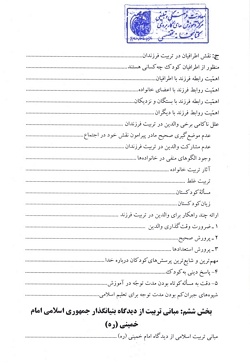 معاونت فرهنگی و تبلیغی
ج: نقش اطرافیان در تربیت فرزندان
منظور از اطرافیان کودک چه کسانی هستند
اهمّیت رابطه فرزند با اطرافیان
اهمّیت روابط فرزند با اعضای خانواده
اهمّیت روابط فرزند با بستگان و نزدیکان
اهمّیت روابط فرزند با دیگران
علل ناکامی برخی والدین در تربیت فرزند
عدم موضع‌گیری صحیح مادر پیرامون نقش خود در اجتماع
عدم مشارکت والدین در تربیت فرزندان
وجود الگوهای منفی در خانواده‌ها
آثار تربیت خانواده
تربیت غلط
مسألهٔ کودکستان
زیان کودکستان
ارائه چند راهکار برای والدین در تربیت فرزند
۱ـ ضرورت وقت‌گذاری والدین
۲ـ پرورش صحیح
۳ـ پرورش استعدادها
مهم‌ترین و شایع‌ترین پرسش‌های کودکان درباره خدا
۴ـ پاسخ دینی به کودک
۵ـ دقت به مسأله کوتاه بودن مدت توجّه در آموزش
شیوه‌های جبران کم بودن مدت توجه برای تعلیم اسلامی
بخش ششم: مبانی تربیت از دیدگاه بنیانگذار جمهوری اسلامی امام
خمینی (ره)
مبانی تربیت اسلامی از دیدگاه امام خمینی (ره)